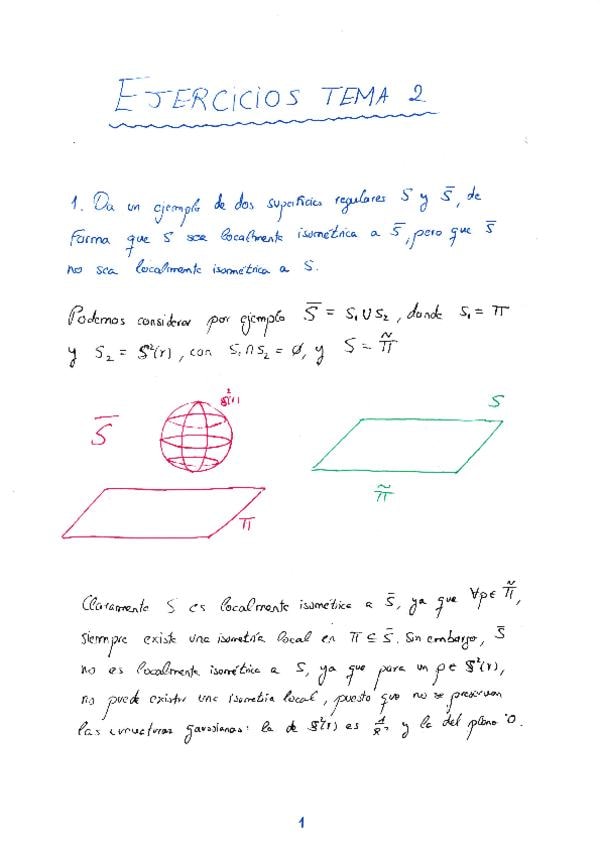 EJERCICIOS TEMA 2
1. Da un ejemplo de dos superficies regulares S y S̄, de
forma que S sea localmente isométrica a S̄, pero que S̄
no sea localmente isométrica a S.
Podemos considerar por ejemplo S̄ = S₁ ∪ S₂, donde S₁ = π
y S₂ = S²(r), con S₁ ∩ S₂ = ∅, y S = π̃
S̄
S²(r)
π
S
π̃
Claramente S es localmente isométrica a S̄, ya que ∀p∈ π̃,
siempre existe una isometría local en π ⊆ S̄. Sin embargo, S̄
no es localmente isométrica a S, ya que para un p ∈ S²(r),
no puede existir una isometría local, puesto que no se preservan
las curvaturas gaussianas: la de S²(r) es 1/R² y la del plano 0.
1